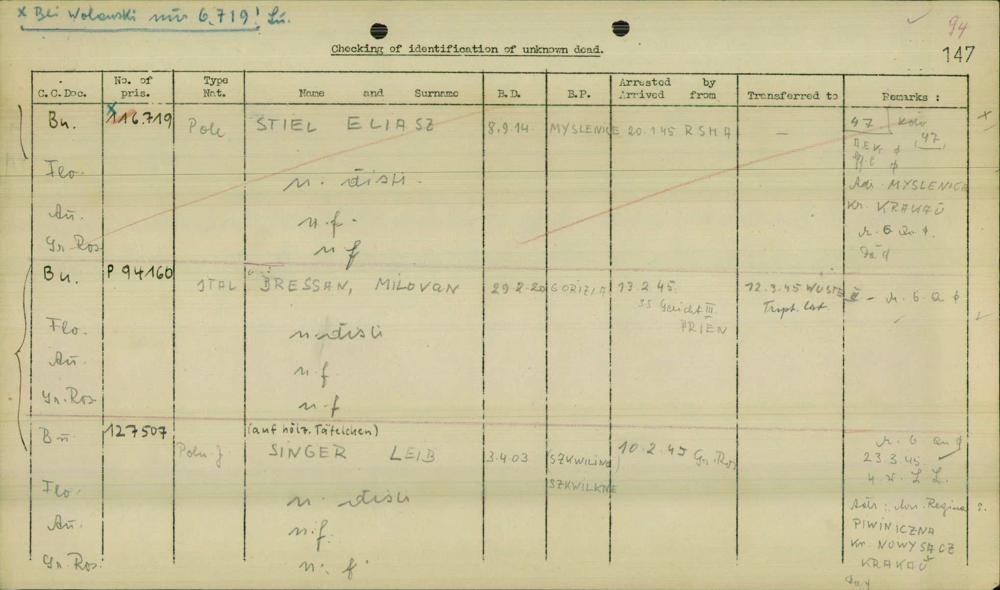 x Bei Wolanski nur 6.719! Lu.
94
Checking of identification of unknown dead.
147
C.C.Doc. No. of pris. Type Nat. Name and Surname B.D. B.P. Arrested by Arrived from Transferred to Remarks :
Bu. 116.719 Pole STIEL ELIASZ 8.9.14 MYSLENICE 20.1.45 RSHA — 47
47
Flo. n. disti.
Adr. MYSLENICE
Au. n.f.
Kr. KRAKAU
Gr.Ros n f
Bu. P 94160 ITAL BRESSAN, MILOVAN 29.2.20 GORIZIA 13.2.45. 12.3.45 WÜSTE
SS Gericht III Trspt. Lst.
PRIEN
Flo. n. disti
Au. n.f.
Gr.Ros. n.f
(auf hölz. Täfelchen)
Bu 127507 Poln. J. SINGER LEIB 3.4.03 (SZKWILINE) 10.2.45 Gr.Ros
23.3.45
SZKWILKNE
Flo. n. disti
Adr: Regina ?
Au. n.f.
PIWINICZNA
Kr. NOWY SĄCZ
Gr.Ros. n. f.
KRAKAU